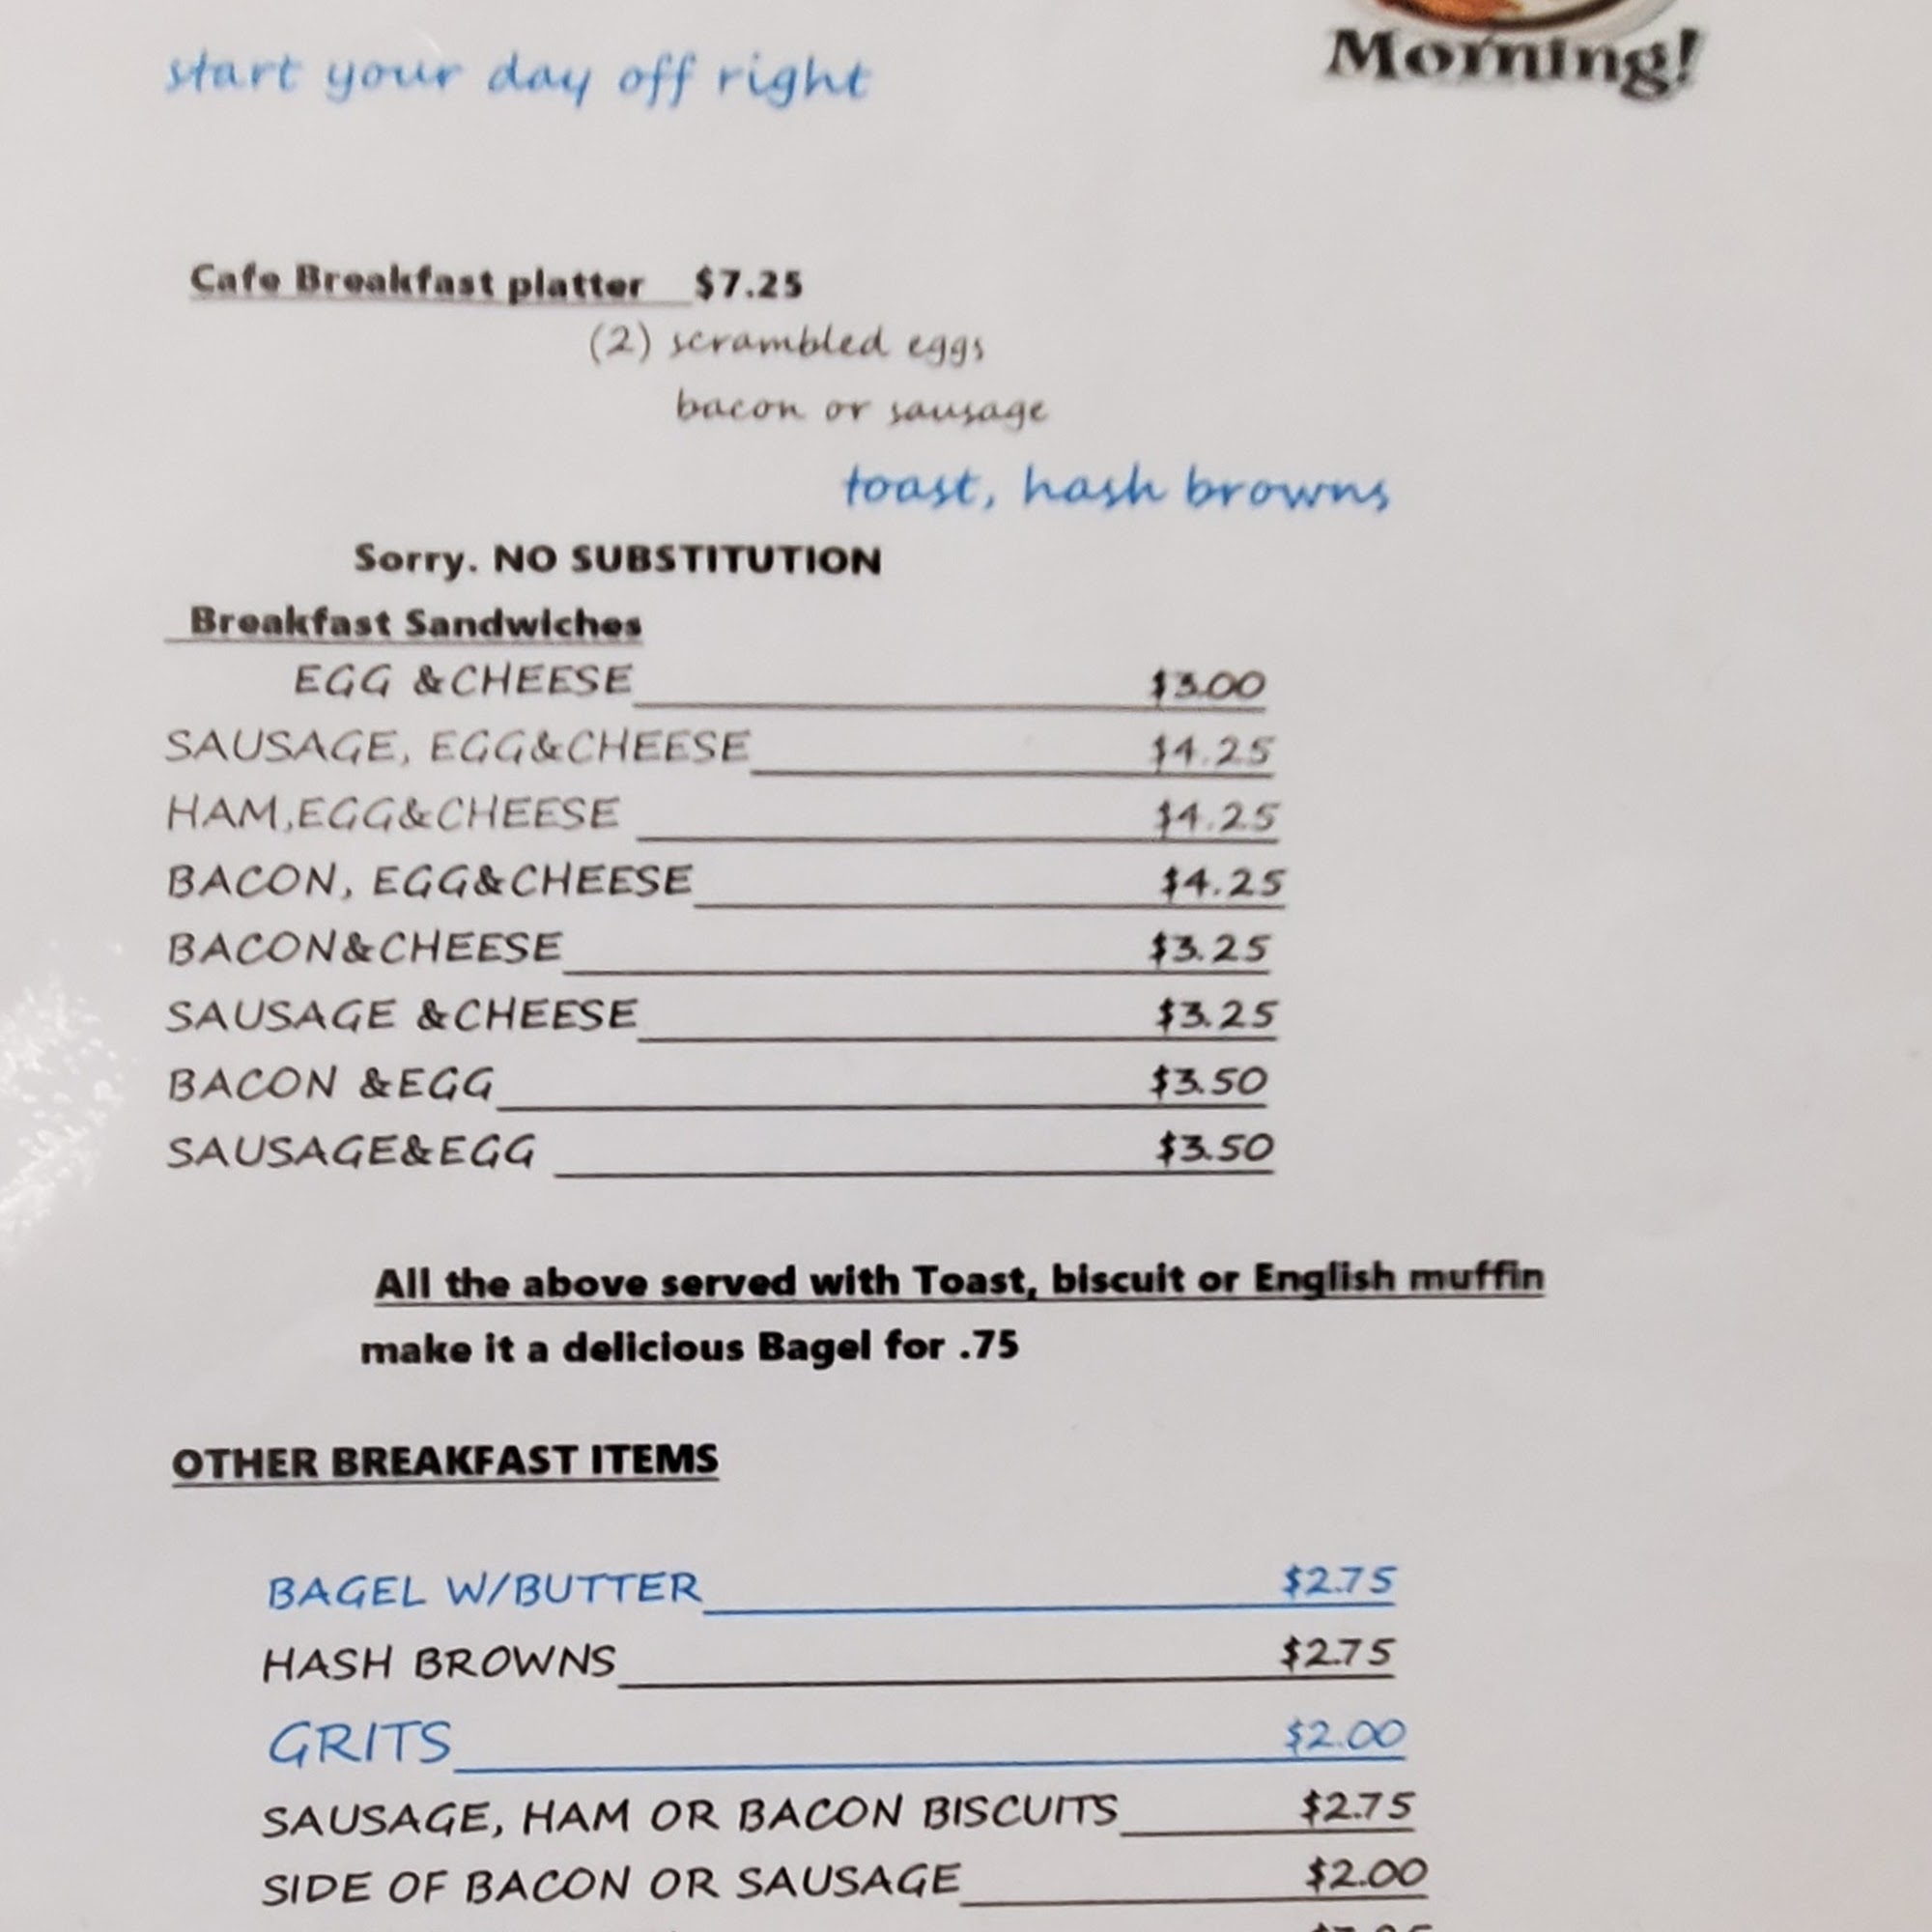 start your day off right
Morning!
Cafe Breakfast platter $7.25
(2) scrambled eggs
bacon or sausage
toast, hash browns
Sorry. NO SUBSTITUTION
Breakfast Sandwiches
EGG &CHEESE $3.00
SAUSAGE, EGG&CHEESE $4.25
HAM,EGG&CHEESE $4.25
BACON, EGG&CHEESE $4.25
BACON&CHEESE $3.25
SAUSAGE &CHEESE $3.25
BACON &EGG $3.50
SAUSAGE&EGG $3.50
All the above served with Toast, biscuit or English muffin
make it a delicious Bagel for .75
OTHER BREAKFAST ITEMS
BAGEL W/BUTTER $2.75
HASH BROWNS $2.75
GRITS $2.00
SAUSAGE, HAM OR BACON BISCUITS $2.75
SIDE OF BACON OR SAUSAGE $2.00